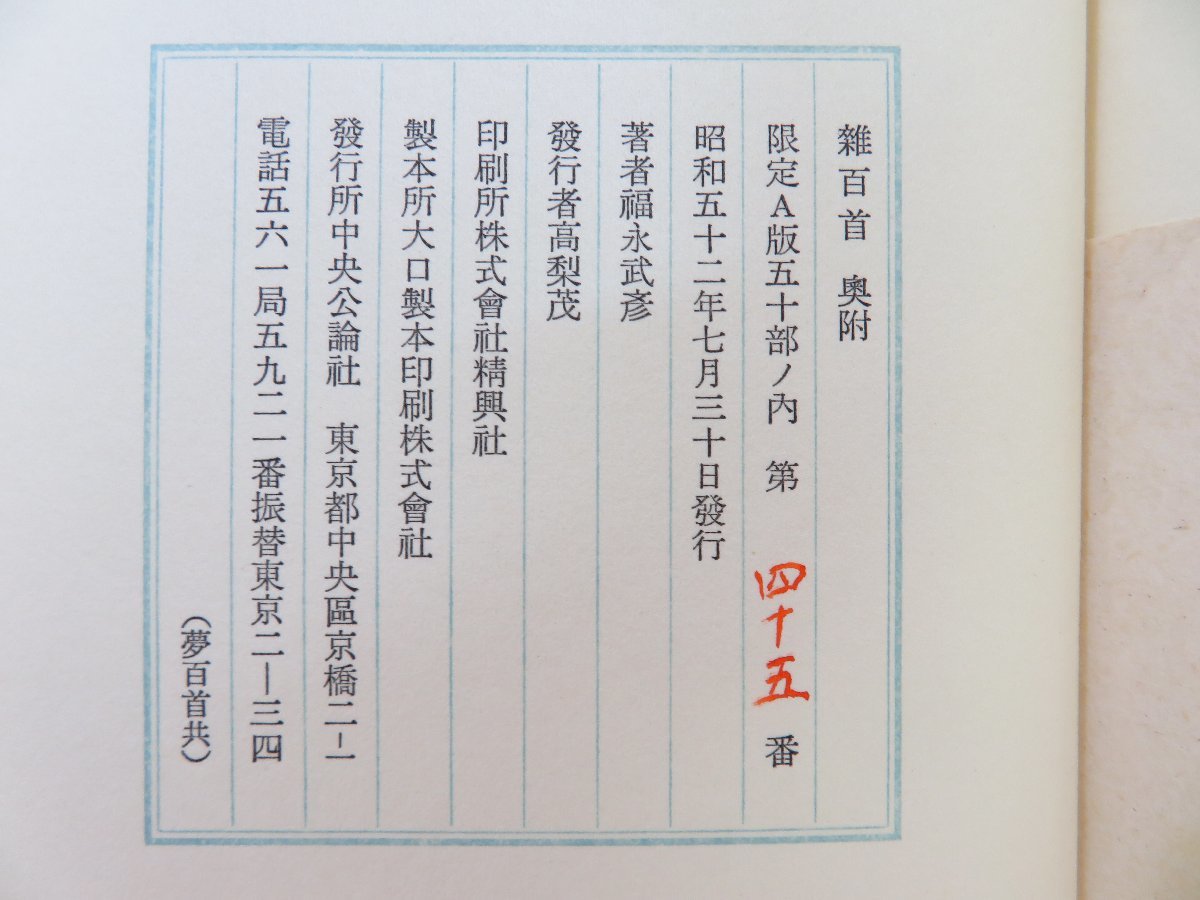 雜百首　奧附
限定A版五十部ノ內　第　四十五　番
昭和五十二年七月三十日發行
著者福永武彥
發行者高梨茂
印刷所株式會社精興社
製本所大口製本印刷株式會社
發行所中央公論社　東京都中央區京橋二ー一
電話五六一局五九二一番振替東京二ー三四
（夢百首共）